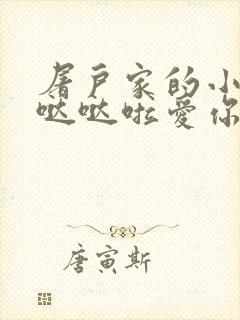 屠户家的小
哒哒啦爱你
唐寅斯